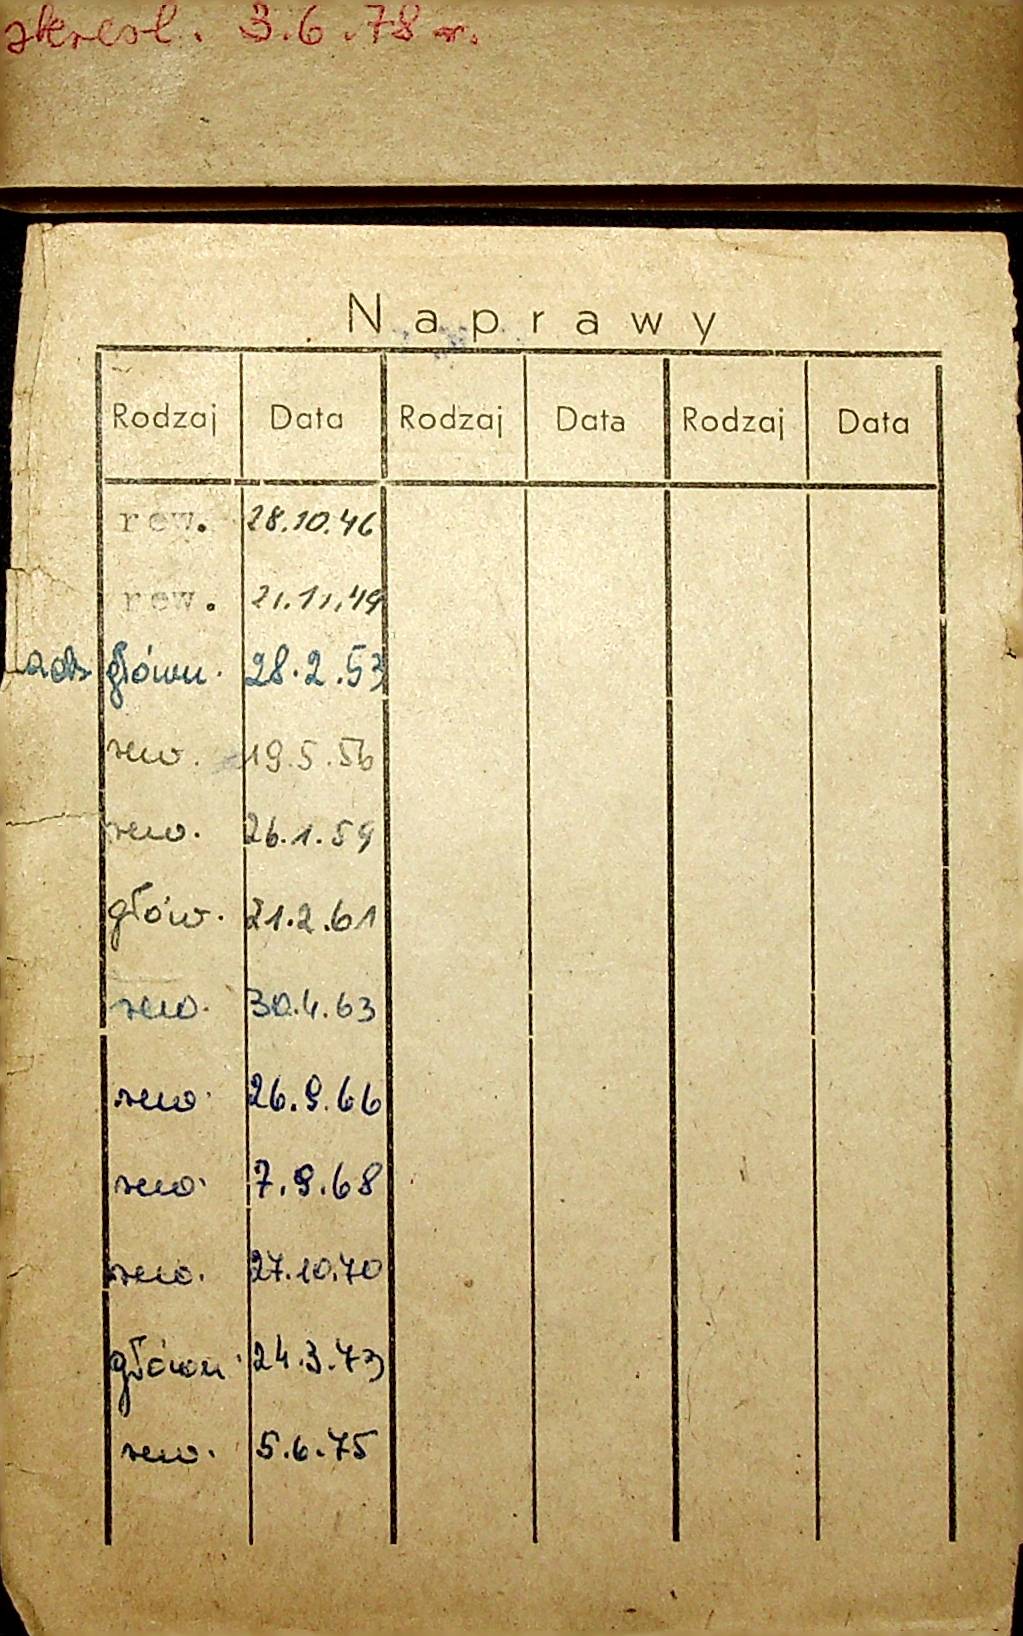 skreśl. 3.6.78 r.
Naprawy
Rodzaj Data Rodzaj Data Rodzaj Data
rew. 28.10.46
rew. 21.11.49
główn. 28.2.53
rew. 19.5.56
rew. 26.1.59
głów. 21.2.61
rew. 30.4.63
rew. 26.9.66
rew. 7.9.68
rew. 27.10.70
główn. 24.3.73
rew. 5.6.75